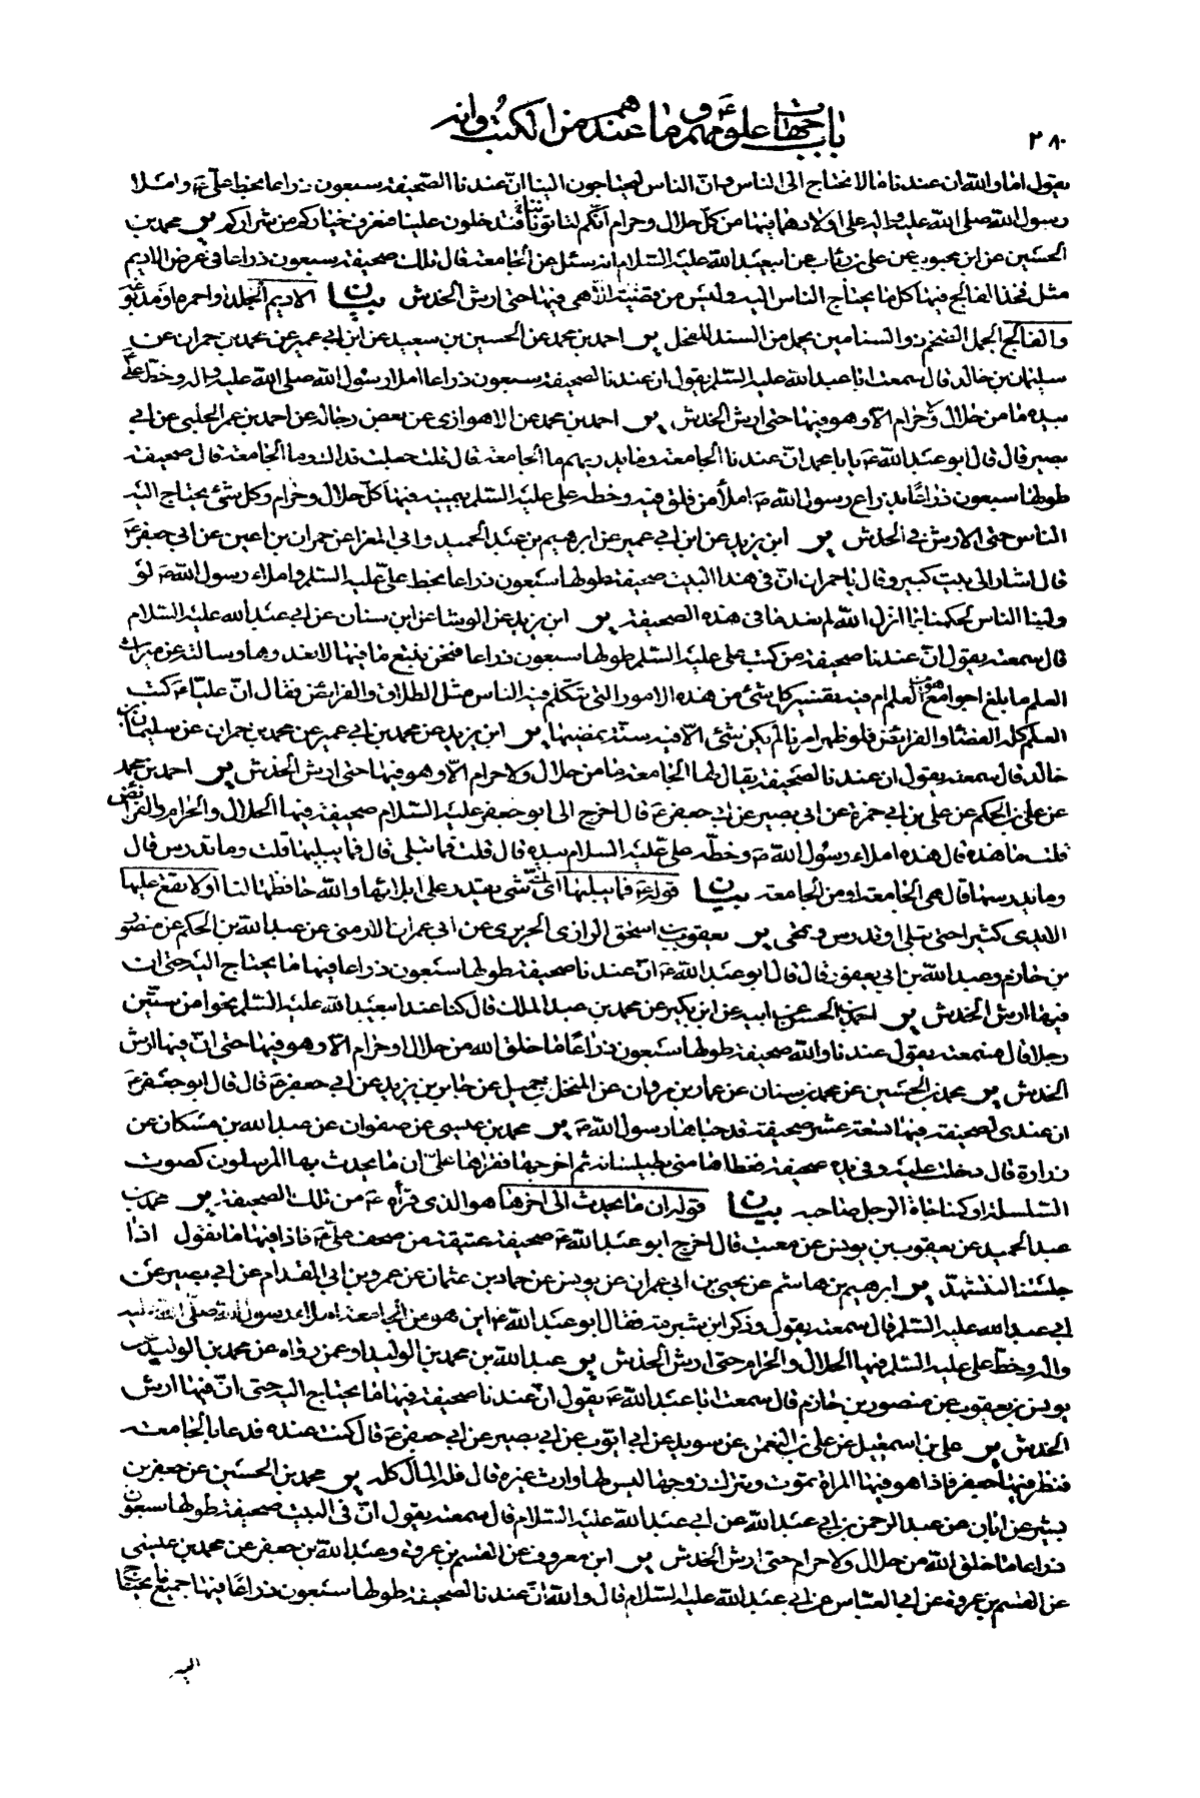 باب جهات علومهم ع وما عندهم من الكتب وانه
٢٨٠
يقول اما والله ان عندنا ما لا نحتاج الى الناس وان الناس ليحتاجون الينا ان عندنا الصحيفة سبعون ذراعا بخط علي ع واملاء
رسول الله صلى الله عليه واله وعلى اولادهما فيها من كل حلال وحرام انكم لتاتوننا فتدخلون علينا فنعرف خياركم من شراركم ير محمد بن
الحسين عن ابن محبوب عن علي بن رئاب عن ابيعبد الله عليه السلام انه سئل عن الجامعة قال تلك صحيفة سبعون ذراعا في عرض الاديم
مثل فخذ الفالج فيها كل ما يحتاج الناس اليه وليس من قضية الا هي فيها حتى ارش الخدش بيان الاديم الجلد او احمره او مدبوغه
والفالج الجمل الضخم ذو السنامين يحمل من السند للفحل ير احمد بن محمد عن الحسين بن سعيد عن ابن ابي عمير عن محمد بن حمران عن
سليمان بن خالد قال سمعت ابا عبد الله عليه السلام يقول ان عندنا لصحيفة سبعون ذراعا املاء رسول الله صلى الله عليه واله وخط علي ع
بيده ما من حلال ولا حرام الا وهو فيها حتى ارش الخدش ير احمد بن محمد عن الاهوازي عن بعض رجاله عن احمد بن عمر الحلبي عن ابي
بصير قال قال ابو عبد الله ع يا با محمد ان عندنا الجامعة وما يدريهم ما الجامعة قال قلت جعلت فداك وما الجامعة قال صحيفة
طولها سبعون ذراعا بذراع رسول الله ص املاء من فلق فيه وخطه علي عليه السلم بيمينه فيها كل حلال وحرام وكل شئ يحتاج اليه
الناس حتى الارش في الخدش ير ابن يزيد عن ابن ابي عمير عن ابرهيم بن عبد الحميد وابي المغرا عن حمران بن اعين عن ابي جعفر ع
قال اشار الى بيت كبير وقال يا حمران ان في هذا البيت صحيفة طولها سبعون ذراعا بخط علي عليه السلم واملاء رسول الله ص لو
ولينا الناس لحكمنا بما انزل الله لم نعد ما في هذه الصحيفة ير ابن يزيد عن الوشا عن ابن سنان عن ابي عبد الله عليه السلام
قال سمعته يقول ان عندنا صحيفة من كتب علي عليه السلم طولها سبعون ذراعا فنحن نتبع ما فيها لا نعدوها وسالته عن ميراث
العلم ما بلغ اجوامع هو من العلم ام فيه تفسير كل شئ من هذه الامور التي تتكلم فيه الناس مثل الطلاق والفرائض فقال ان عليا ع كتب
العلم كله القضاء والفرائض فلو ظهر امرنا لم يكن شئ الا فيه سنة نمضيها ير ابن يزيد عن محمد بن ابي عمير عن محمد بن حمران عن سليمان بن
خالد قال سمعته يقول ان عندنا لصحيفة يقال لها الجامعة ما من حلال ولا حرام الا وهو فيها حتى ارش الخدش ير احمد بن محمد
عن علي بن الحكم عن علي بن ابي حمزة عن ابي بصير عن ابي جعفر ع قال اخرج الى ابو جعفر عليه السلام صحيفة فيها الحلال والحرام والفرائض
قلت ما هذه قال هذه املاء رسول الله ص وخطه علي عليه السلام بيده قال قلت فما تبلى قال فما يبليها قلت وما تدرس قال
وما يدرسها قال هي الجامعة او من الجامعة بيان قوله ع فما يبليها اي اي شئ يقتدر على ابلائها والله حافظها لنا او لا تقع عليها
الايدي كثيرا حتى تبلى او تدرس وتمحى ير يعقوب بن اسحق الرازي الحريري عن ابي عمران الارمني عن عبد الله بن الحكم عن منصور
بن حازم وعبد الله بن ابي يعفور قال قال ابو عبد الله ع ان عندنا صحيفة طولها سبعون ذراعا فيها ما يحتاج اليه حتى ان
فيها ارش الخدش ير احمد بن الحسن عن ابيه عن ابن بكير عن محمد بن عبد الملك قال كنا عند ابيعبد الله عليه السلم نحوا من ستين
رجلا قال فسمعته يقول عندنا والله صحيفة طولها سبعون ذراعا ما خلق الله من حلال او حرام الا وهو فيها حتى ان فيها ارش
الخدش ير محمد بن الحسين عن محمد بن سنان عن عمار بن مروان عن المنخل بن جميل عن جابر بن يزيد عن ابي جعفر ع قال قال ابو جعفر ع
ان عندي لصحيفة فيها تسعة عشر صحيفة قد حباها رسول الله ص ير محمد بن عيسى عن صفوان عن عبد الله بن مسكان عن
زرارة قال دخلت عليه وفي يده صحيفة فغطاها مني بطيلسانه ثم اخرجها فقراها علي ان ما يحدث بها المرسلون كصوت
السلسلة او كمناجاة الرجل صاحبه بيان قوله ان ما يحدث الى اخرها هو الذي قرأه ع من تلك الصحيفة ير محمد بن
عبد الحميد عن يعقوب بن يونس عن معتب قال اخرج ابو عبد الله ع صحيفة عتيقة من صحف علي ع فاذا فيها ما نقول اذا
جلسنا لنتشهد ير ابرهيم بن هاشم عن يحيى بن ابي عمران عن يونس عن حماد بن عثمان عن عمرو بن ابي المقدام عن ابي بصير عن
ابي عبد الله عليه السلم قال سمعته يقول وذكر ابن شبرمة فقال ابو عبد الله ع اين هو من الجامعة املاء رسول الله صلى الله عليه
واله وخط علي عليه السلم فيها الحلال والحرام حتى ارش الخدش ير عبد الله بن محمد بن الوليد او عمن رواه عن محمد بن الوليد عن
يونس بن يعقوب عن منصور بن حازم قال سمعت ابا عبد الله ع يقول ان عندنا صحيفة فيها ما يحتاج اليه حتى ان فيها ارش
الخدش ير علي بن اسمعيل عن علي بن النعمن عن سويد عن ابي ايوب عن ابي بصير عن ابي جعفر ع قال كنت عنده فدعا بالجامعة
فنظر فيها جعفر فاذا هو فيها المراة تموت وتترك زوجها ليس لها وارث غيره قال فله المال كله ير محمد بن الحسين عن جعفر بن
بشير عن ابان عن عبد الرحمن بن ابي عبد الله عن ابي عبد الله عليه السلام قال سمعته يقول ان في البيت صحيفة طولها سبعون
ذراعا ما خلق الله من حلال ولا حرام حتى ارش الخدش ير ابن معروف عن القسم بن عروة وعبد الله بن جعفر عن محمد بن عيسى
عن القسم بن عروة عن ابي العباس عن ابي عبد الله عليه السلام قال والله ان عندنا لصحيفة طولها سبعون ذراعا فيها جميع ما يحتاج
اليه